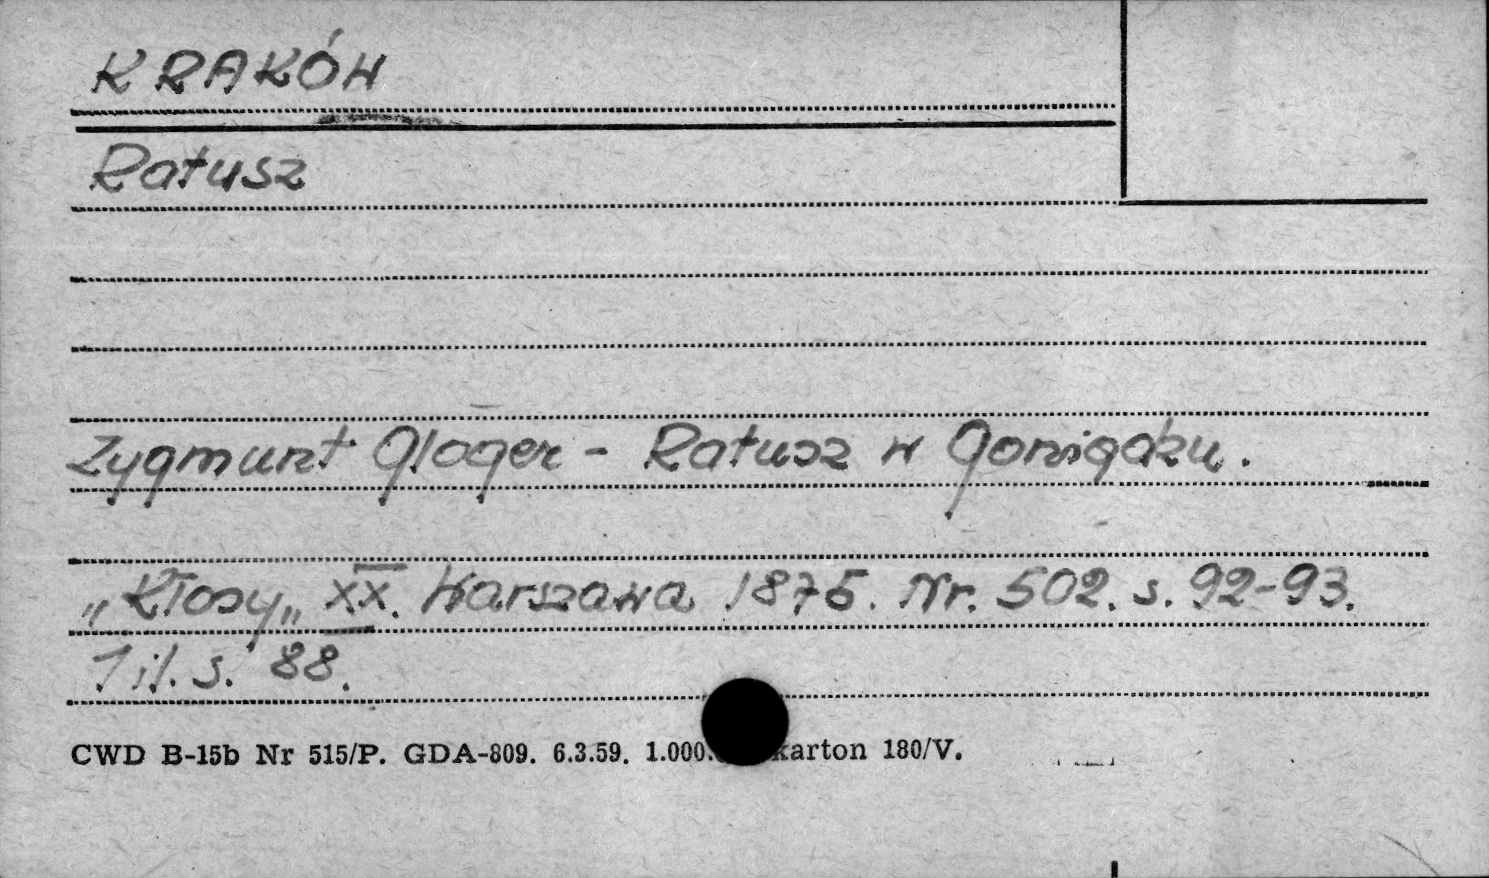 KRAKÓW
Ratusz
Zygmunt Gloger - Ratusz w Goniądzu.
„Kłosy„ XX. Warszawa 1875. Nr. 502. s. 92-93.
1 il. s. 88.
CWD B-15b Nr 515/P. GDA-809. 6.3.59. 1.000. karton 180/V.